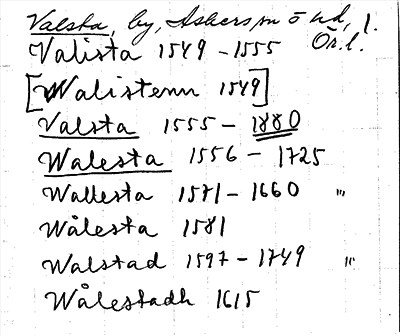 Valsta, by, Askers sn ö hd, Ör. l.
Valista 1549 - 1555
[Walistenn 1549]
Valsta 1555 - 1880
Walesta 1556 - 1725
Wallesta 1571 - 1660 "
Wålesta 1581
Walstad 1597 - 1749 "
Wålestadh 1615